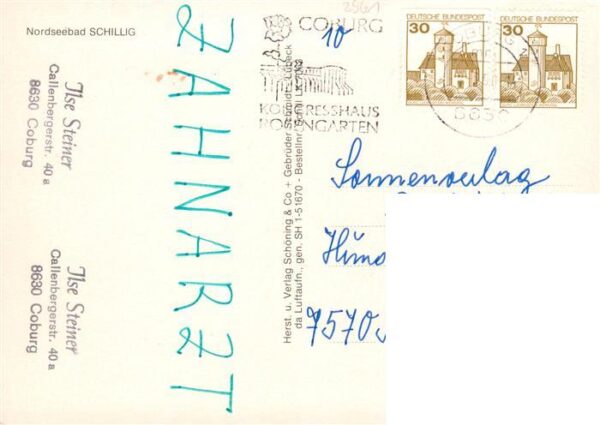 Nordseebad SCHILLIG
Ilse Steiner
Callenbergerstr. 40 a
8630 Coburg
Ilse Steiner
Callenbergerstr. 40 a
8630 Coburg
ZAHNARZT
Herst. u. Verlag Schöning & Co + Gebrüder Schmidt, Lübeck
da Luftaufn., gen. SH 1-51670 - Bestellnr.
10
COBURG
KONGRESSHAUS
ROSENGARTEN
DEUTSCHE BUNDESPOST
30
DEUTSCHE BUNDESPOST
30
Sonnenverlag
7570